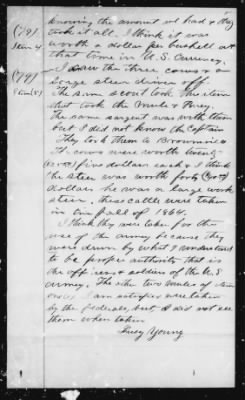 knowing the amount we had & they
(78) took it all. I think it was
Item 4 worth a dollar per bushell at
that time in U.S. Currency.
(79) I saw the three cows & a
Item (5) large steer driven off
The same scout took the steer
that took the Mule & Mary.
The same sargent was with them
but I did not know the Captain
They took them to Brownsville
The cows were worth twenty
five dollars each & I think
the steer was worth forty (40)
dollars he was a large work
steer, these cattle were taken
in the fall of 1864.
I think they were taken for the
use of the army because they
were driven by what I understood
to be proper authority that is
the officers & soldiers of the U.S.
army. The other two mules
I am satisfied were taken
by the federals but I did not see
them when taken
Lucy Young